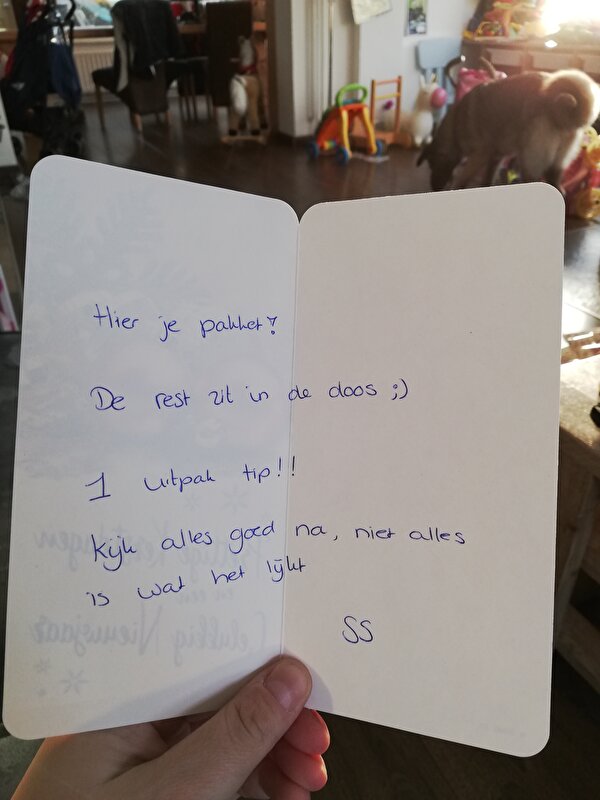 Hier je pakket!
De rest zit in de doos ;)
1 uitpak tip!!
Kijk alles goed na, niet alles
is wat het lijkt
SS